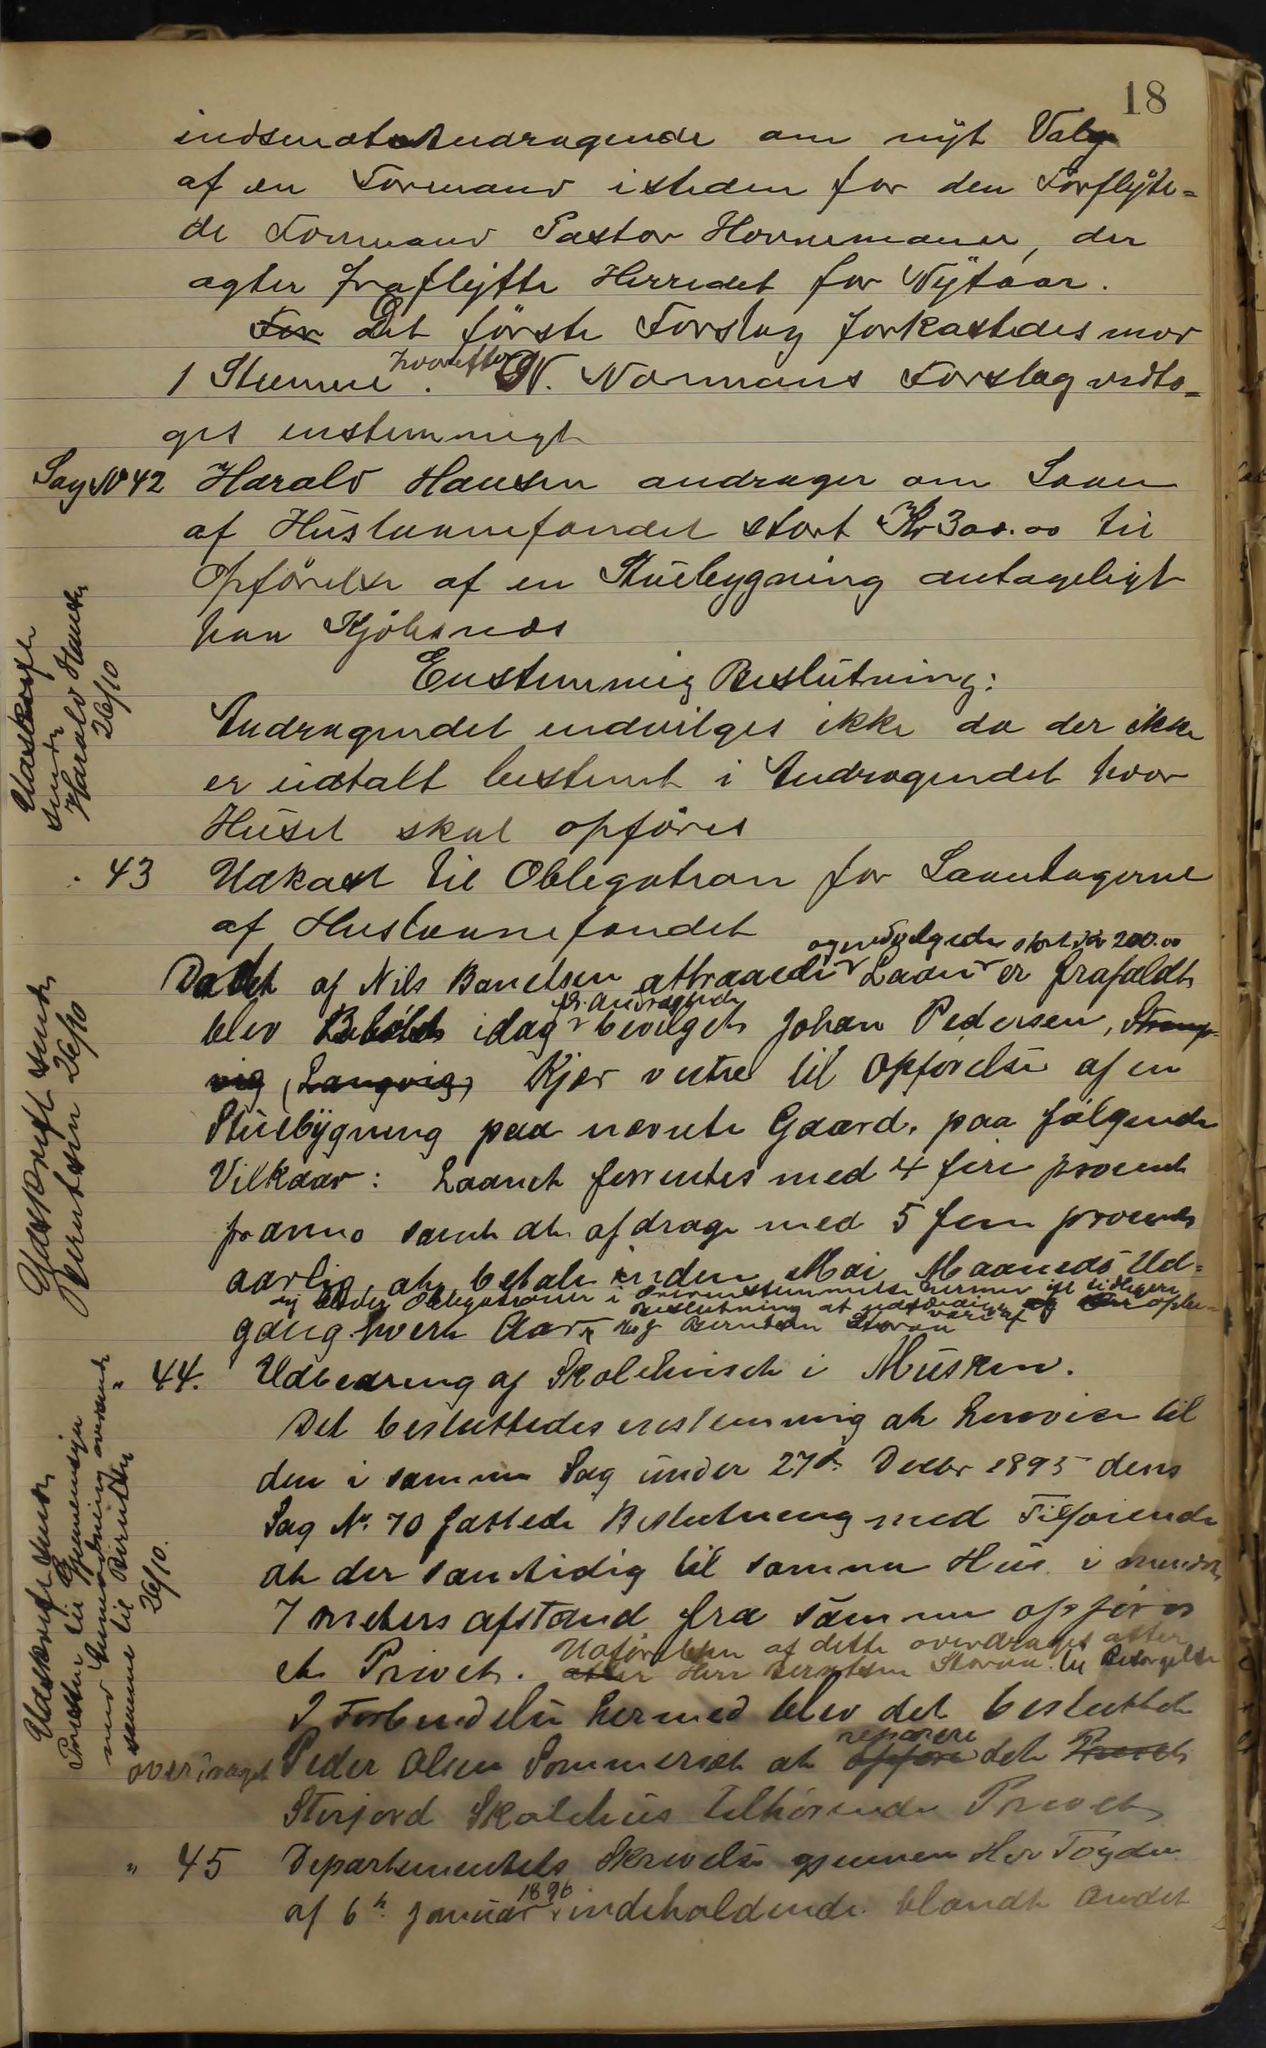 18
indsendt Andragende om nyt Valg
af en Formand isteden for den Forflytte-
de Formand Pastor Hornemann, der
agter fraflytte Herredet før Nytaar.
For Det første Forslag forkastedes mod
1 Stemme hvorefter N. Normans Forslag vedto-
ges enstemmigt
Sag No 42 Harald Hansen andrager om Laan
af Huslaanefondet stort Kr 300.00 til
Opførelse af en Stuebygning antageligt
paa Kjøbsnæs
Enstemmig Beslutning:
Andragendet indvilges ikke da der ikke
er udtalt bestemt i Andragendet hvor
Huset skal opføres
Udskrift
sendt
Harald Hansen
26/10
" 43 Udkast til Obligation for Laantagerne
af Huslaanefondet
og indvilgede stort Kr 200.00
Da det af Nils Baneltsen attraaede Laan er frafaldt
pr. Andragende
blev idag bevilget Johan Pedersen, Strømp-
vig (Langvig) Kjær vestre til Opførelse af en
Stuebygning paa nævnte Gaard, paa følgende
Vilkaar: Laanet forrentes med 4 fire procent
pr anno samt at afdrage med 5 fem procent
aarlig, at betale inden Mai Maaneds Ud-
Obligationer i Overensstemmelse hermed tidligere
Beslutning at udfærdige
gang hvert Aar, Berntsen Storvan
Udskrift sendt
Berntsen 26/10
" 44. Udbedring af Skolehuset i Musken.
Det besluttedes enstemmig at henvise til
den i samme Sag under 27de Decbr 1895 dens
Sag No. 70 fattede Beslutning med Tilføiende
at der samtidig til samme Hus i mindst
7 meters afstand fra samme opføres
et Privet. Udførelsen af dette overdrages atter
atter Herr Berntsen Storvan til Besørgelse
I Forbindelse hermed blev det besluttet
overdraget Peder Olsen Sommerset at opføre reparere det Privet
Storjord Skolehus tilhørende Privet
Udskrift sendt
Presten til Gjennemsyn
med Anmodning oversende
samme til Berntsen
26/10.
" 45 Departementets Skrivelse gjennem Hr. Fogden
af 6te Januar 1896 indeholdende blandt Andet